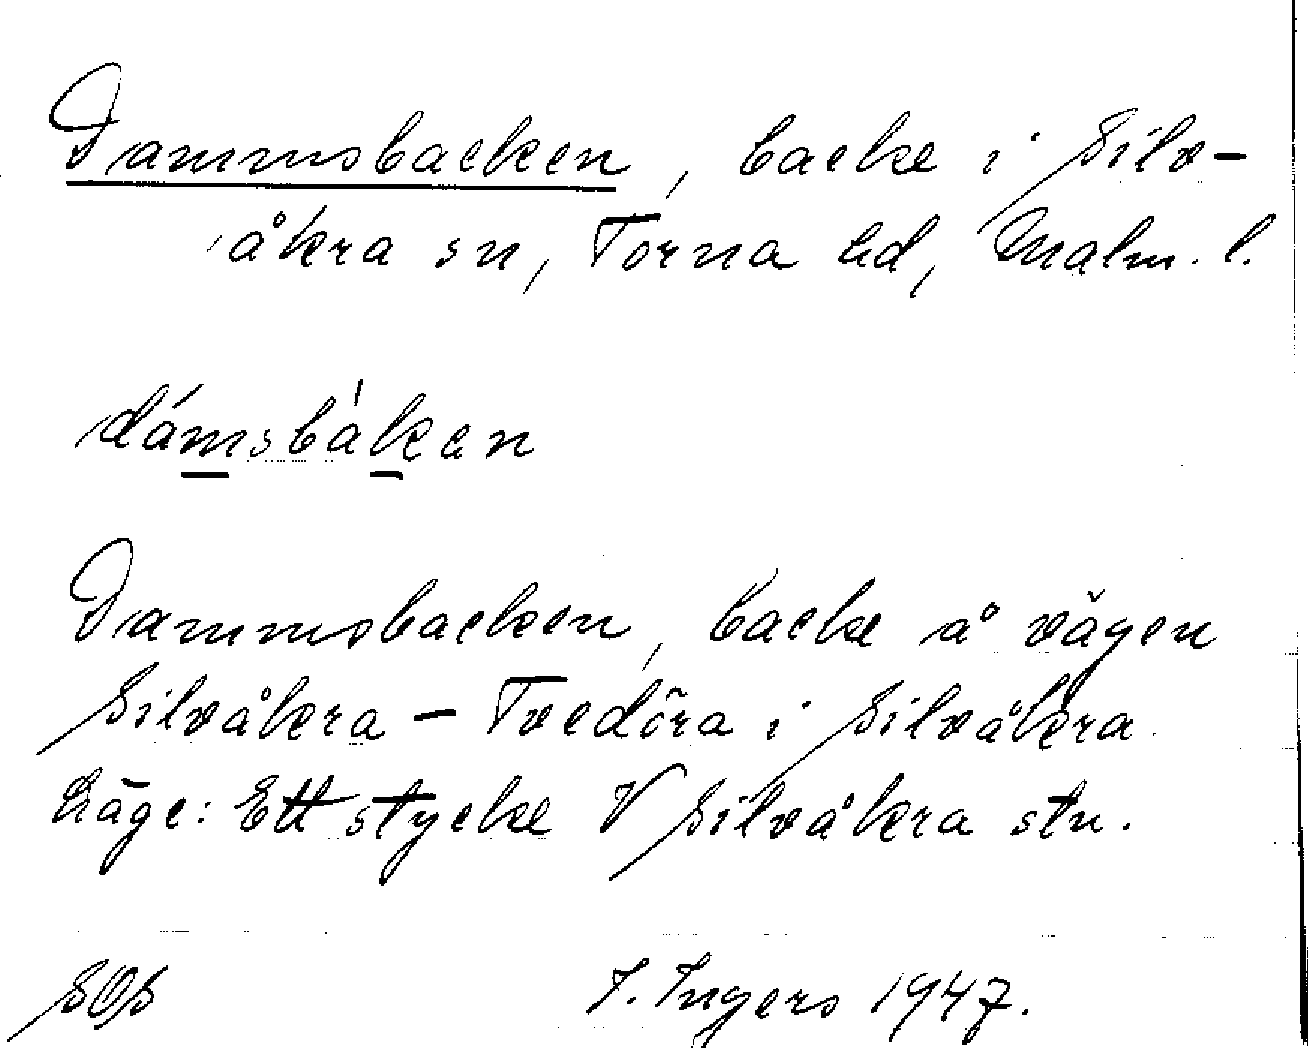 Dammsbacken, backe i Silv-
åkra sn, Torna hd, Malm. l.
dámsbàken
Dammsbacken, backe å vägen
Silvåkra – Tvedöra i Silvåkra.
Läge: Ett stycke V Silvåkra stn.
SOS I. Ingers 1947.